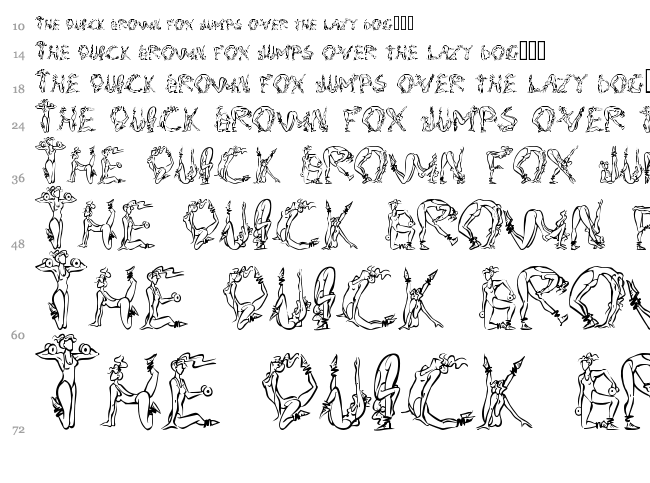 10 THE QUICK BROWN FOX JUMPS OVER THE LAZY DOG□□□
14 THE QUICK BROWN FOX JUMPS OVER THE LAZY DOG□□□
18 THE QUICK BROWN FOX JUMPS OVER THE LAZY DOG
24 THE QUICK BROWN FOX JUMPS OVER T
36 THE QUICK BROWN FOX JUM
48 THE QUICK BROWN F
60 THE QUICK BROW
72 THE QUICK BR